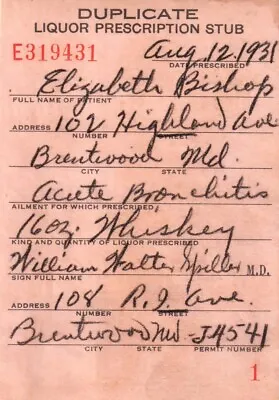 DUPLICATE
LIQUOR PRESCRIPTION STUB
E319431
Aug 12. 1931
DATE PRESCRIBED
Elizabeth Bishop
FULL NAME OF PATIENT
102 Highland Ave
ADDRESS NUMBER STREET
Brentwood Md.
CITY STATE
Acute Bronchitis
AILMENT FOR WHICH PRESCRIBED
16oz. Whiskey
KIND AND QUANTITY OF LIQUOR PRESCRIBED
William Walter Spiller M.D.
SIGN FULL NAME
108 R.I. Ave.
ADDRESS NUMBER STREET
Brentwood Md - J4541
CITY STATE PERMIT NUMBER
1